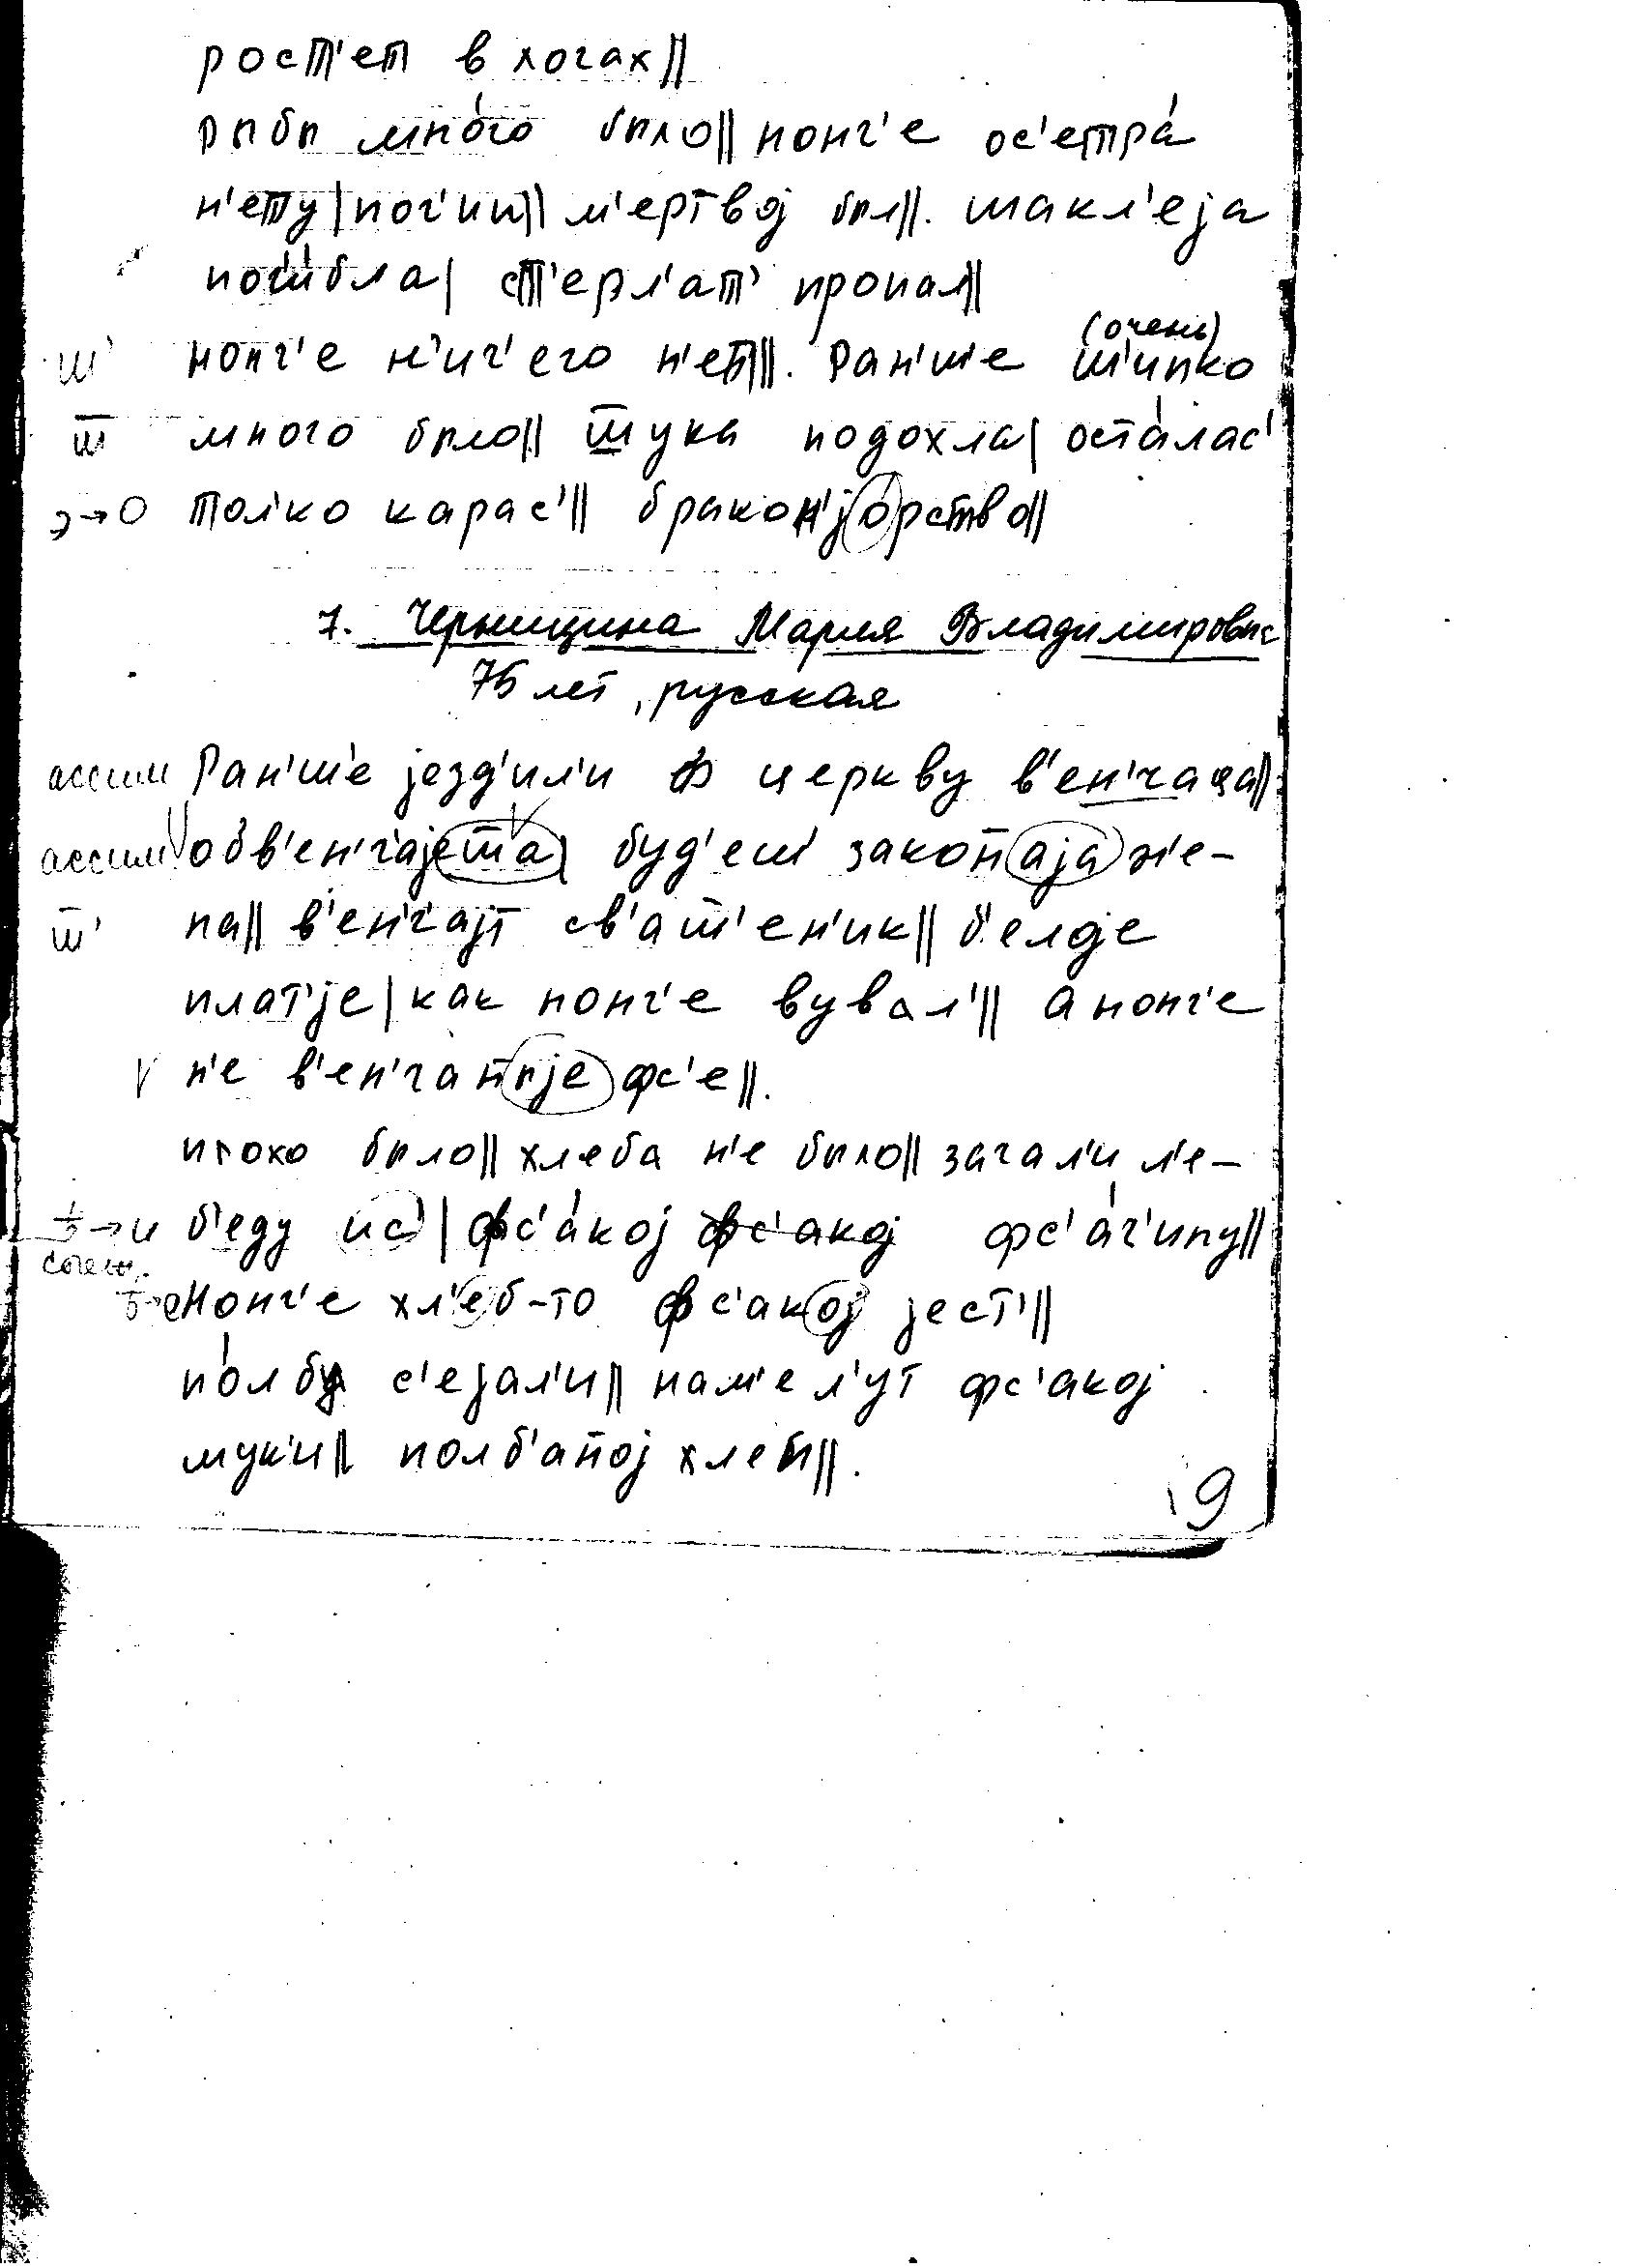 рост'ет в логах||
рыбы мно́го было|| нонч'е ос'етра́
н'ету|поч'ии|| м'ертвој был||. шакл'еја
поги́бла| ст'ерл'ат' пропал||
(очень)
ш' нонч'е н'ич'его н'ет||. Ран'ш'е ш'ипко
ш̅ много было|| ш̅ука подохла| оста́лас'
э→о тол'ко карас'|| бракон'јо́рство||
7. Черницина Мария Владимировна
75 лет, русская
ассим Ран'ш'е језд'ил'и ф церкву в'ен'чаца||
ассим обв'ен'чајет̅а| буд'еш' закон̅аја ж'е-
ш̅' на|| в'ен'чајт св'аш̅'ен'ик|| б'елоје
плат'је|как нонч'е вувал'|| а нонч'е
V н'е в'ен'чан̅ыје фс'е||.
плохо было|| хлеба н'е было|| зачал'и л'е-
ѣ→и б'еду ис'| фс'а́кој фс'акој фс'а́ч'ину||
сочет.
ѣ→е Нонч'е хл'еб-то фс'акој јест'||
по́лбу с'ејал'и|| нам'ел'ут фс'акој
мук'и|| полб'ан̅ој хлеб||.
19